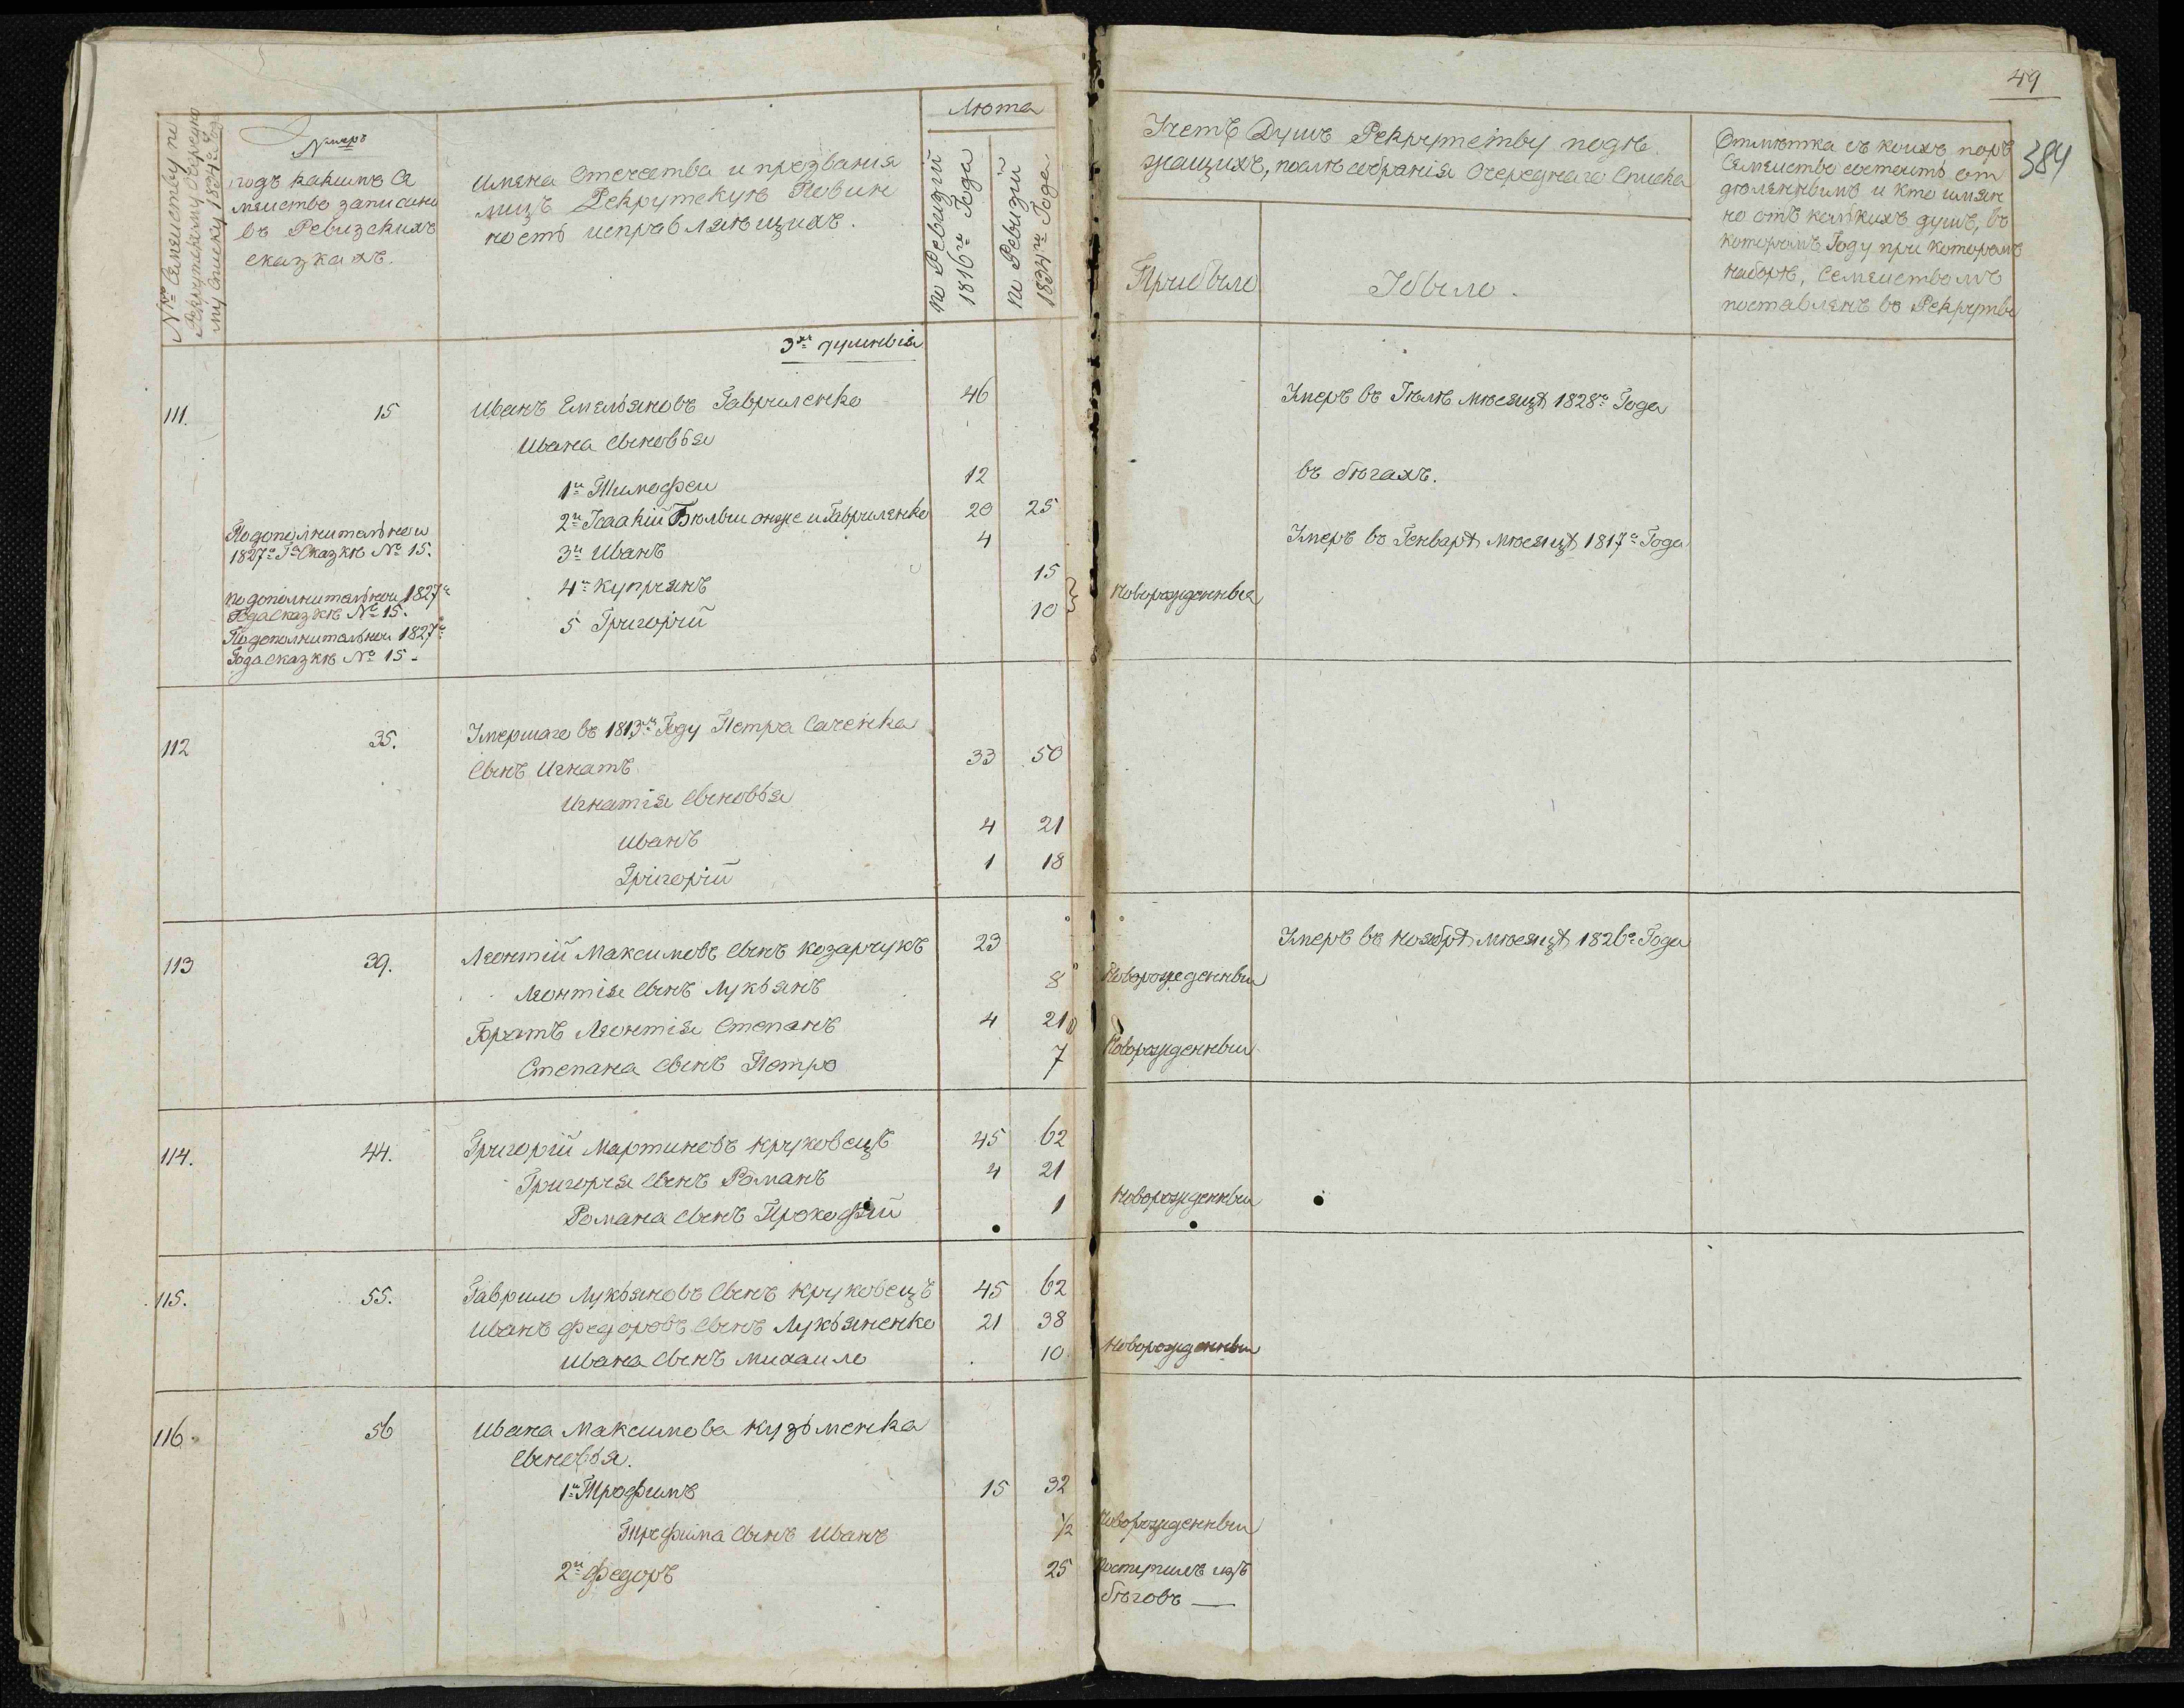 49
384
№ Семейству по
Рекрутскому Очередно
му Списку 1834го Года
Нумеръ
подъ какимъ Се
мейство записано
въ Ревизскихъ
сказкахъ.
Имена Отечества и прозвания
лицъ Рекрутскую Повин
ность исправляющихъ.
Люта
по Ревизій
1816го Года
по Ревизій
1834го Года
Учетъ Душъ Рекрутству подле
жащихъ, после собранія Очереднаго Списка
Прибыло
Убыло.
Отметка съ коихъ поръ
Семейство состоитъ от
деленнымъ и кто имян
но отъ колкихъ душъ, въ
которомъ Году при которомъ
наборе, Семействомъ
поставленъ въ Рекруты
3хъ душныя
111.
15
Иванъ Емельяновъ Гавриленко
46
Умеръ въ Іюле месяце 1828го Года
Ивана Сыновья
1й Тимофей
12
въ бегахъ.
2й Ісаакій Белый онже и Гавриленко
20
25
По дополнительной
1827го Го Сказке № 15.
3й Иванъ
4
Умеръ въ Генваре месяце 1817го Года
по дополнительной 1827го
Года Сказке № 15.
4й Купріянъ
15
Новорожденныя
По дополнительной 1827го
Года Сказке № 15.
5 Григорій
10
112
35.
Умершаго въ 1813мъ Году Петра Саченка
Сынъ Игнатъ
33
50
Игнатія Сыновья
Иванъ
4
21
Григорій
1
18
113
39.
Леонтій Максимовъ Сынъ Козарчукъ
23
Умеръ въ Ноябре месяце 1826го Года
Леонтія Сынъ Лукьянъ
8
Новорожденный
Братъ Леонтія Степанъ
4
21
Степана Сынъ Петро
7
Новорожденный
114.
44.
Григорій Мартиновъ Круковецъ
45
62
Григорія Сынъ Романъ
4
21
Романа Сынъ Прокофій
1
Новорожденный
115.
55.
Гаврило Лукьяновъ Сынъ Круковецъ
45
62
Иванъ Федоровъ Сынъ Лукьяненко
21
38
Ивана Сынъ Михайло
10
Новорожденный
116
56
Ивана Максимова Кузьменка
Сыновья.
1й Трофимъ
15
32
Трофима Сынъ Иванъ
1/2
Новорожденный
2й Федоръ
25
Поступилъ изъ
беговъ —